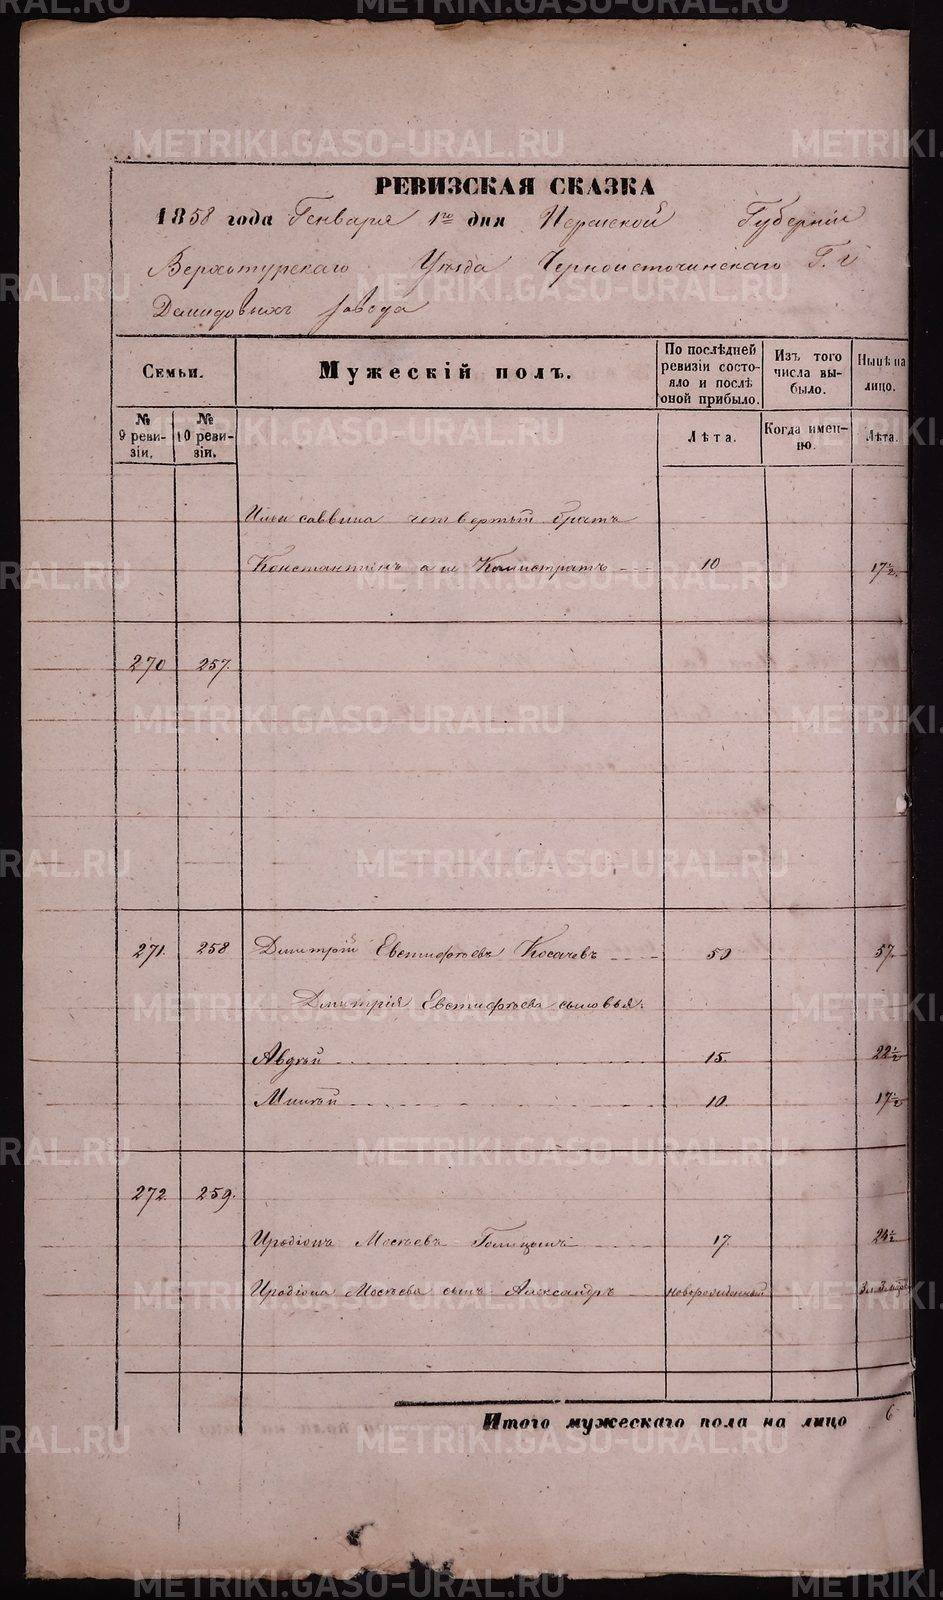 РЕВИЗСКАЯ СКАЗКА
1858 года Генваря 1го дня Пермской Губернiи
Верхотурскаго Уѣзда Черноисточинскаго Г. г
Демидовыхъ завода
Семьи.
Мужескiй полъ.
По послѣдней ревизiи состояло и послѣ оной прибыло.
Изъ того числа выбыло.
Нынѣ на лицо.
№ 9 ревизiи.
№ 10 ревизiи.
Лѣта.
Когда именно.
Лѣта.
Саввина четвертый братъ
Константинъ а не Калистратъ 10 17½
270 257.
271. 258 Дмитрiй Евстифѣевъ Косачевъ 50 57.
Дмитрiя Евстифѣева сыновья:
Авдѣй 15. 22½
Минѣй 10. 17½
272. 259.
Иродiонъ Мосѣевъ Голицынъ 17. 24½
Иродiона Мосѣева сынъ Александръ новорожденный
Итого мужескаго пола на лицо 6
METRIKI.GASO-URAL.RU